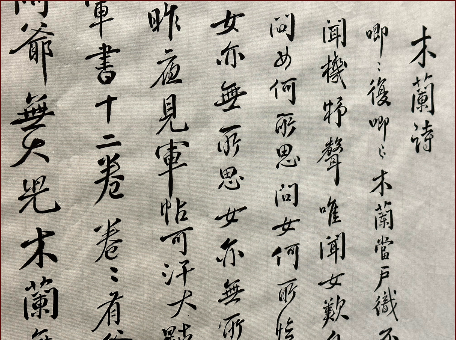 木蘭詩
唧〻復唧〻木蘭當戶織不
聞機杼聲唯聞女歎
問女何所思問女何所憶
女亦無所思女亦無所
昨夜見軍帖可汗大點
軍書十二卷卷〻有
阿爺無大兒木蘭無